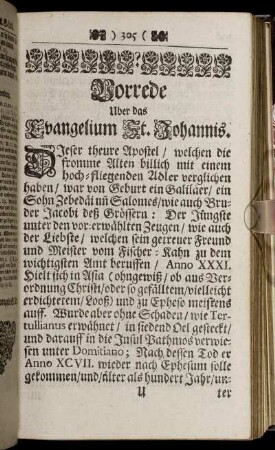 ) 305 (
Vorrede
Uber das
Evangelium St. Johannis.
DIeser theure Apostel / welchen die
fromme Alten billich mit einem
hoch-fliegenden Adler verglichen
haben / war von Geburt ein Galiläer / ein
Sohn Zebedäi uñ Salomes / wie auch Bru-
der Jacobi deß Grössern: Der Jüngste
unter den vor-erwählten Zeugen / wie auch
der Liebste / welchen sein getreuer Freund
und Meister vom Fischer-Kahn zu dem
wichtigsten Amt beruffen / Anno XXXI.
Hielt sich in Asia (ohngewiß / ob aus Ver-
ordnung Christi / oder so gefälltem / vielleicht
erdichtetem / Looß) und zu Epheso meistens
auff. Wurde aber ohne Schaden / wie Ter-
tullianus erwähnet / in siedend Oel gesteckt /
und darauff in die Insul Pathmos verwie-
sen unter Domitiano; Nach dessen Tod er
Anno XCVII. wieder nach Ephesum solle
gekommen / und / älter als hundert Jahr / un-
U ter